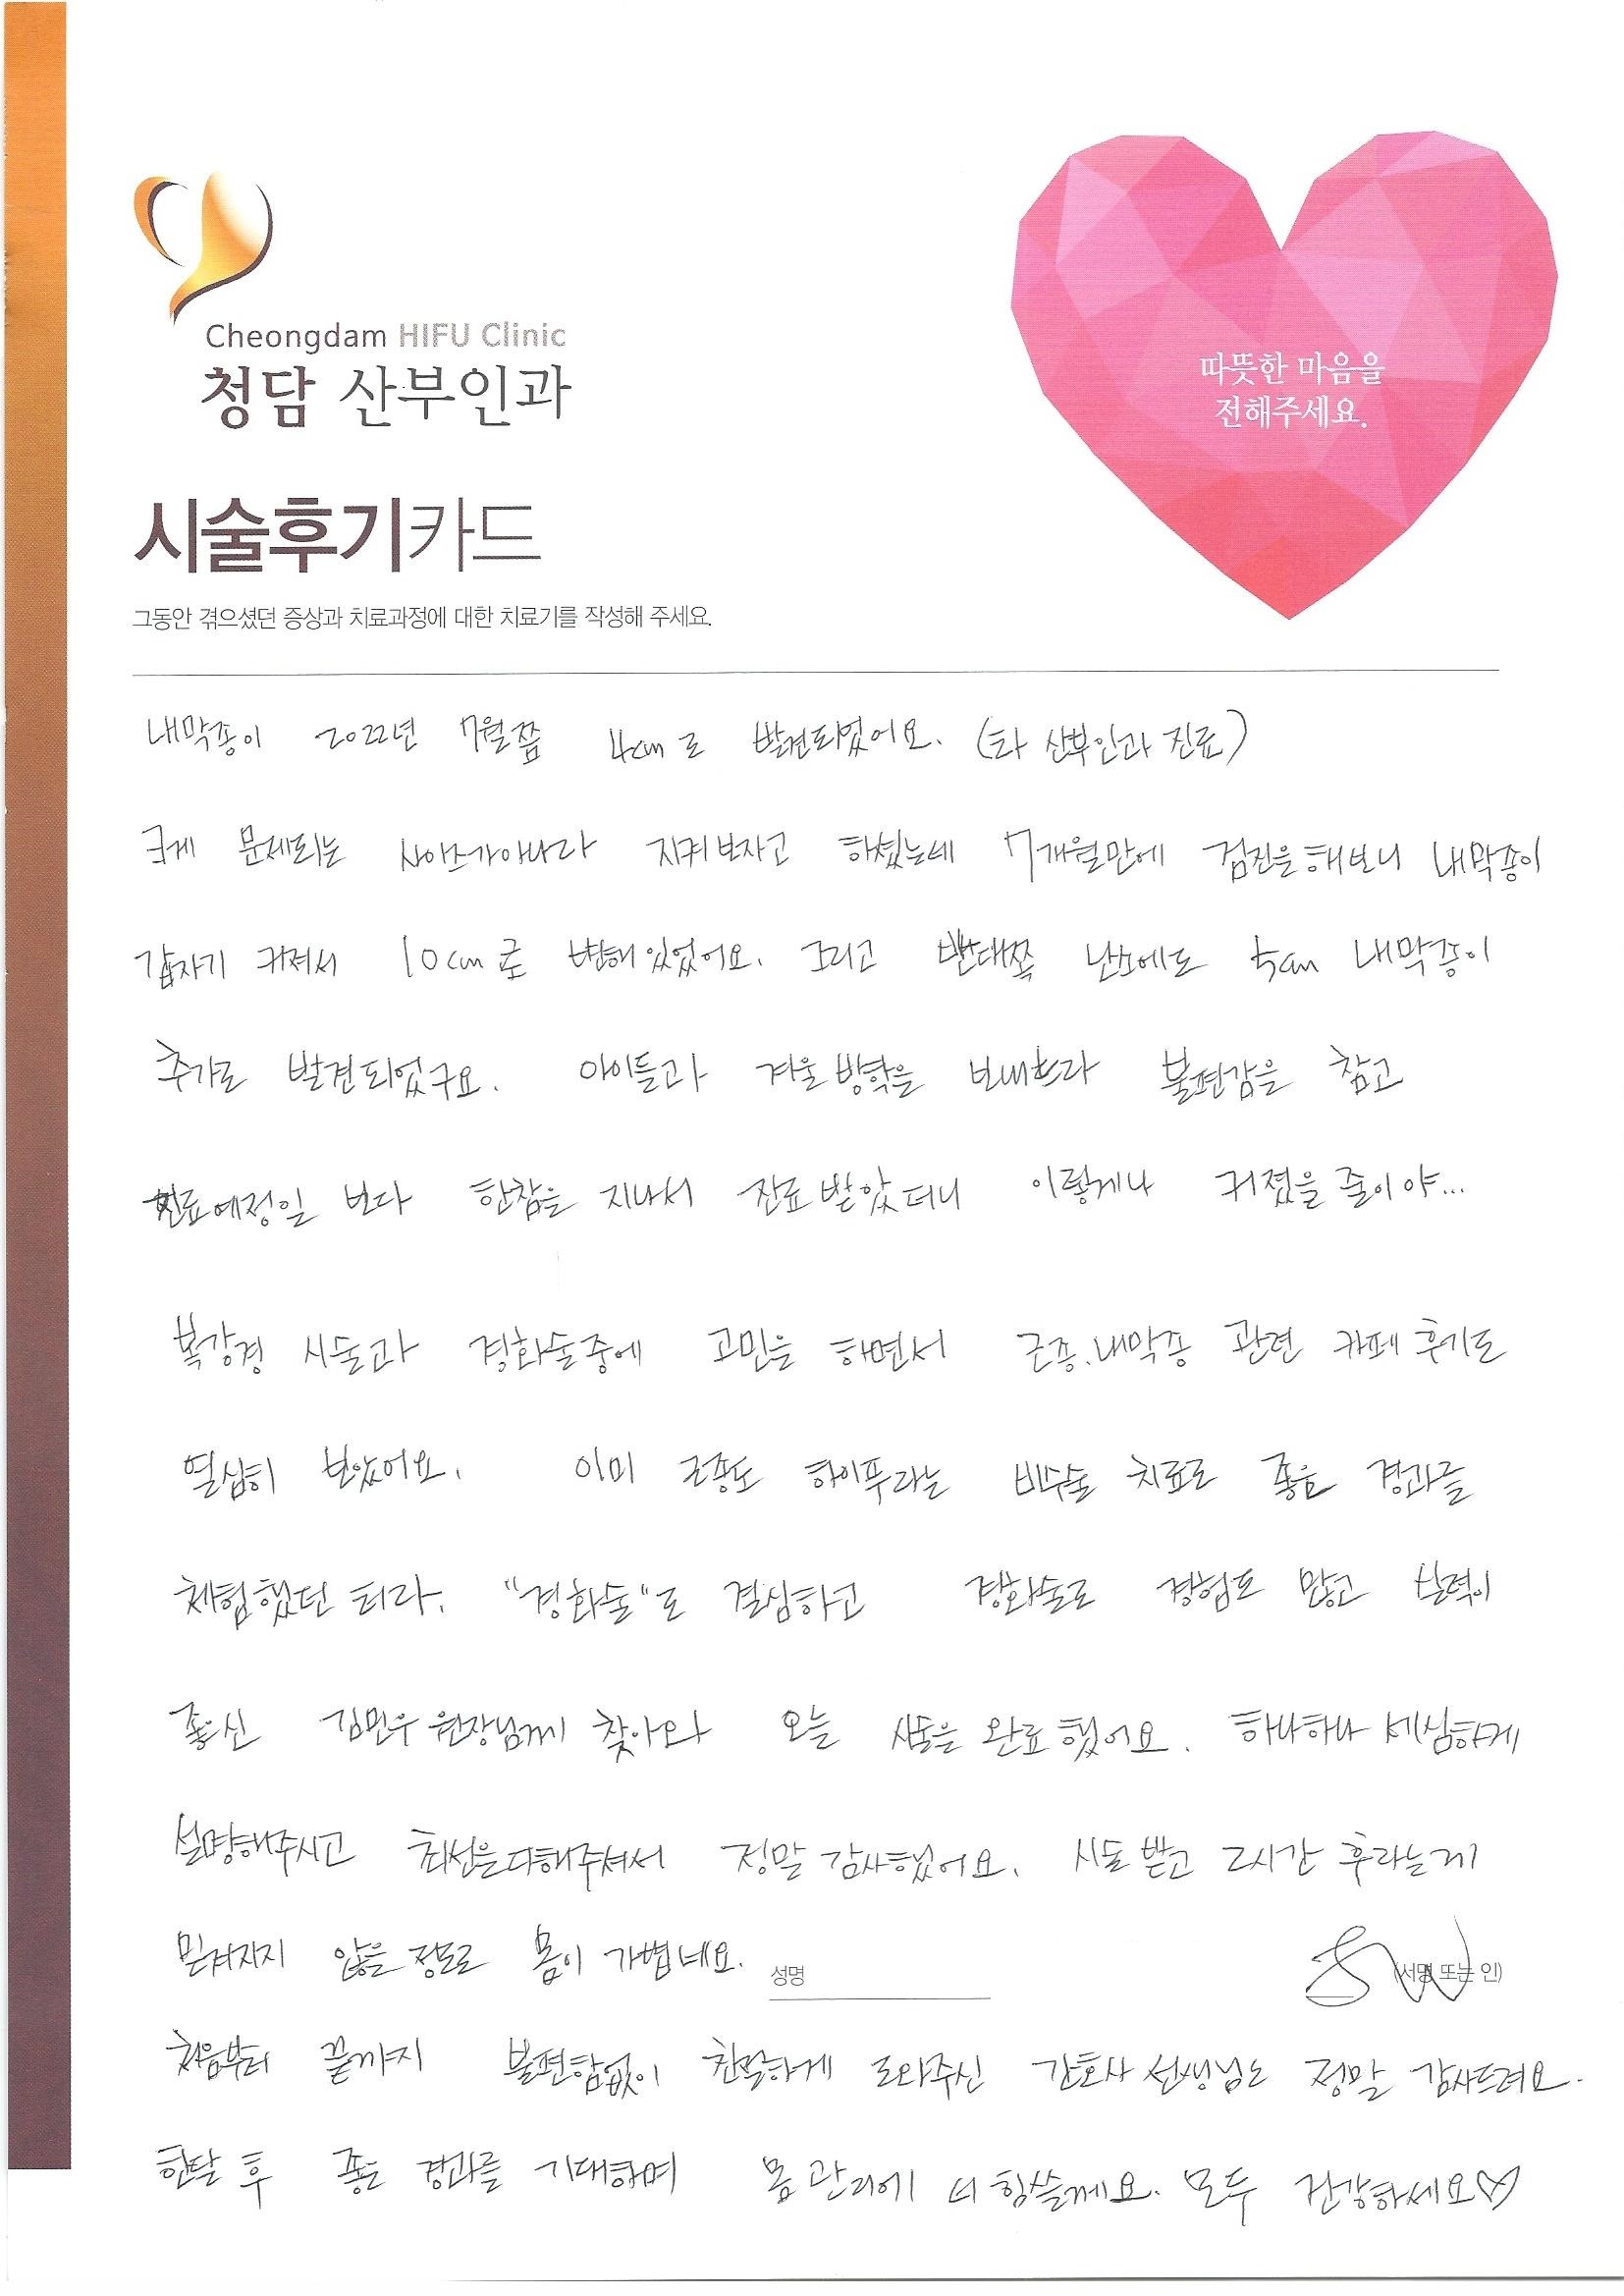 Cheongdam HIFU Clinic
청담 산부인과
따뜻한 마음을
전해주세요.
시술후기카드
그동안 겪으셨던 증상과 치료과정에 대한 치료기를 작성해 주세요.
내막종이 2022년 7월쯤 4cm로 발견되었어요. (타 산부인과 진료)
크게 문제되는 사이즈가아니라 지켜보자고 하셨는데 7개월만에 검진을해보니 내막종이
갑자기 커져서 10cm로 변해있었어요. 그리고 반대쪽 난소에도 5cm 내막종이
추가로 발견되었구요. 아이들과 겨울방학을 보내느라 불편감을 참고
진료예정일 보다 한참을 지나서 진료받았더니 이렇게나 커졌을줄이야...
복강경 시술과 경화술중에 고민을 하면서 근종.내막종 관련 카페후기도
열심히 보았어요. 이미 근종도 하이푸라는 비수술 치료로 좋은 경과를
체험했던 터라. "경화술"로 결심하고 경화술로 경험도 많고 실력이
좋으신 김민우 원장님께 찾아와 오늘 시술을 완료했어요. 하나하나 세심하게
설명해주시고 최선을다해주셔서 정말 감사했어요. 시술받고 2시간 후라는게
믿겨지지 않을정도로 몸이 가볍네요.
성명 (서명 또는 인)
처음부터 끝까지 불편함없이 친절하게 도와주신 간호사 선생님도 정말 감사드려요.
한달 후 좋은 경과를 기대하며 몸관리에 더 힘쓸께요. 모두 건강하세요♡